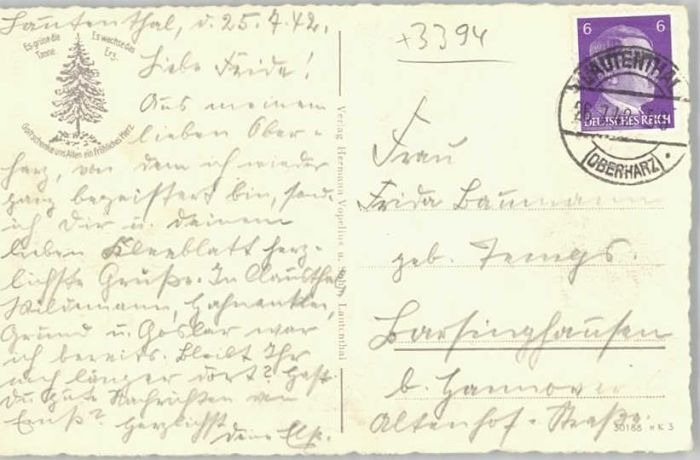 Lautenthal, d. 25.7.42.
Es grüne die Tanne
Es wachse das Erz.
Gott schenke uns Allen ein fröhliches Herz.
Liebe Frida!
Aus meinem
lieben Ober-
harz, von dem ich wieder
ganz begeistert bin, sende
ich Dir u. Deinem
lieben Kleeblatt herz-
lichste Grüße. In Clausthal,
Wildemann, Hahnenklee,
Grund u. Goslar war
ich bereits. Bleibt Ihr
noch länger dort? Hast
Du gute Nachrichten von
Ernst? Herzlichst
Deine
Verlag Hermann Vopelius u. Lautenthal
+3394
6 6
DEUTSCHES REICH
LAUTENTHAL
(OBERHARZ)
Frau
Frida Baumann
geb. Temps.
Barsinghausen
b. Hannover
Altenhof-Straße.
K 3